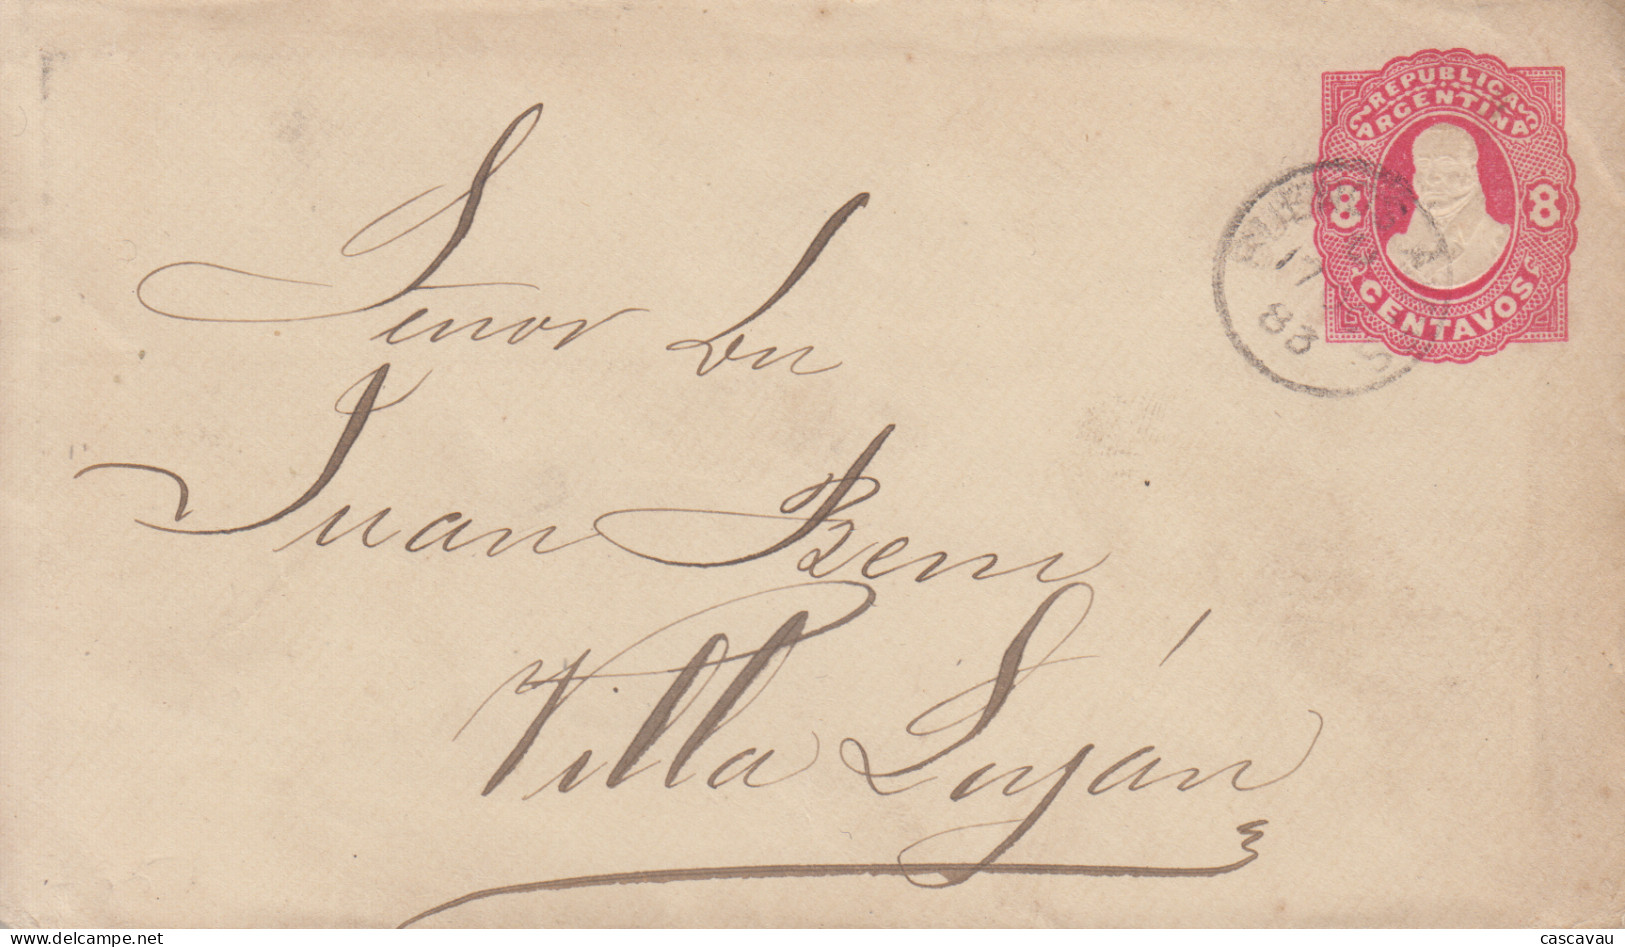 REPUBLICA
ARGENTINA
8 8
CENTAVOS
17
83
Señor Dn
Juan Beni
Villa Luján
www.delcampe.net
cascavau